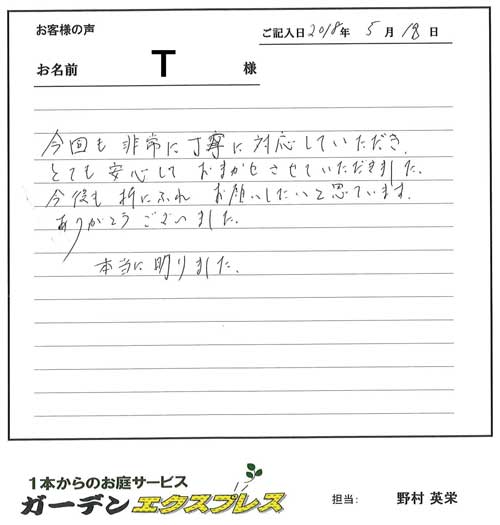 お客様の声
ご記入日 2018年 5月 18日
お名前 T 様
今回も非常に丁寧に対応していただき、
とても安心しておまかせさせていただきました。
今後も折にふれお願いしたいと思ています。
ありがとうございました。
本当に助りました。
1本からのお庭サービス
ガーデンエクスプレス
担当: 野村 英栄